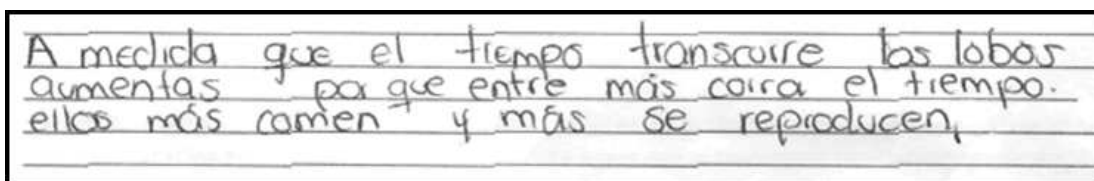 A medida que el tiempo transcurre los lobos
aumentas por que entre más corra el tiempo.
ellos más comen y más se reproducen,